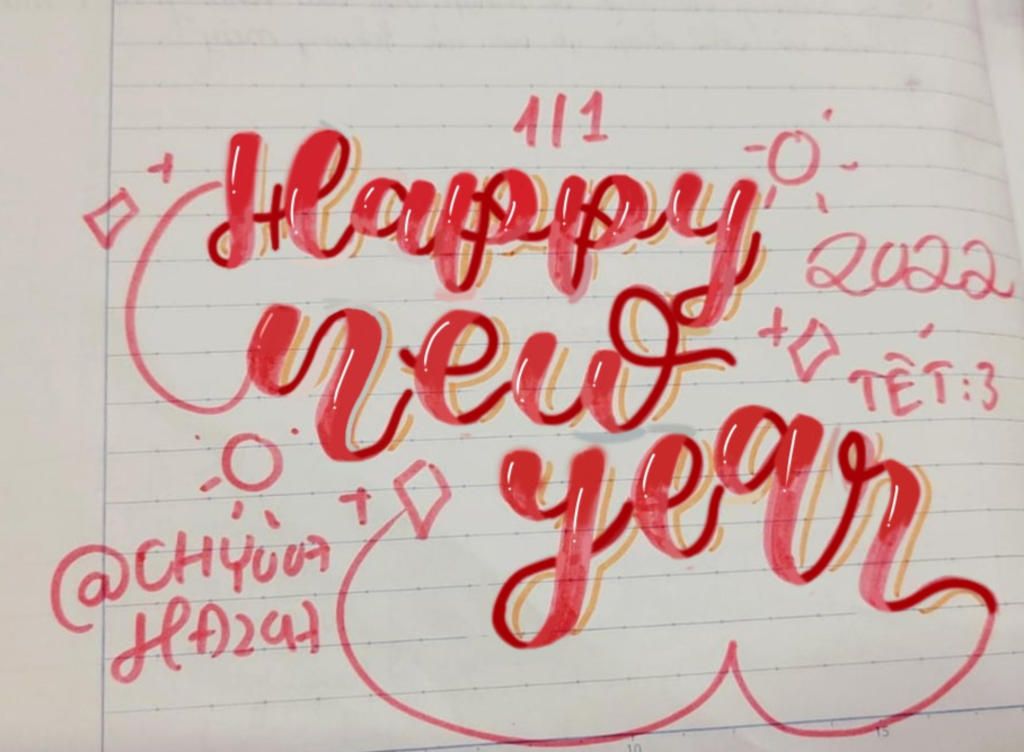 1/1
Happy
2022
new
TẾT:3
year
10
15